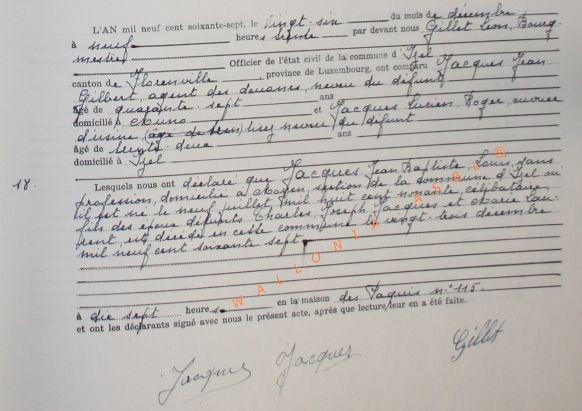 L'AN mil neuf cent soixante-sept, le vingt-six du mois de décembre
à neuf heures trente par devant nous Gillet Léon, Bourg-
mestre Officier de l'état civil de la commune d'Izel
canton de Florenville, province de Luxembourg, ont comparu Jacques Jean
Gilbert, agent des douanes, neveu du défunt
âgé de quarante-sept ans
domicilié à Muno et Jacques Lucien, Roger, ouvrier
d'usine lisez neveu du défunt
âgé de ans
domicilié à Izel
18. Lesquels nous ont déclaré que Jacques Jean Baptiste, Louis, sans
profession, domicilié à Moyen, section de la commune d'Izel où
il est né le neuf juillet mil huit cent nonante, célibataire,
fils des époux défunts Charles, Joseph Jacques et Marie Lau-
rent, est décédé en cette commune le vingt-trois décembre
mil neuf cent soixante sept
à dix sept heures en la maison des Paquis n° 115.
et ont les déclarants signé avec nous le présent acte, après que lecture leur en a été faite.
WALLONIA ASBL ®
Jacques Jacques Gillet